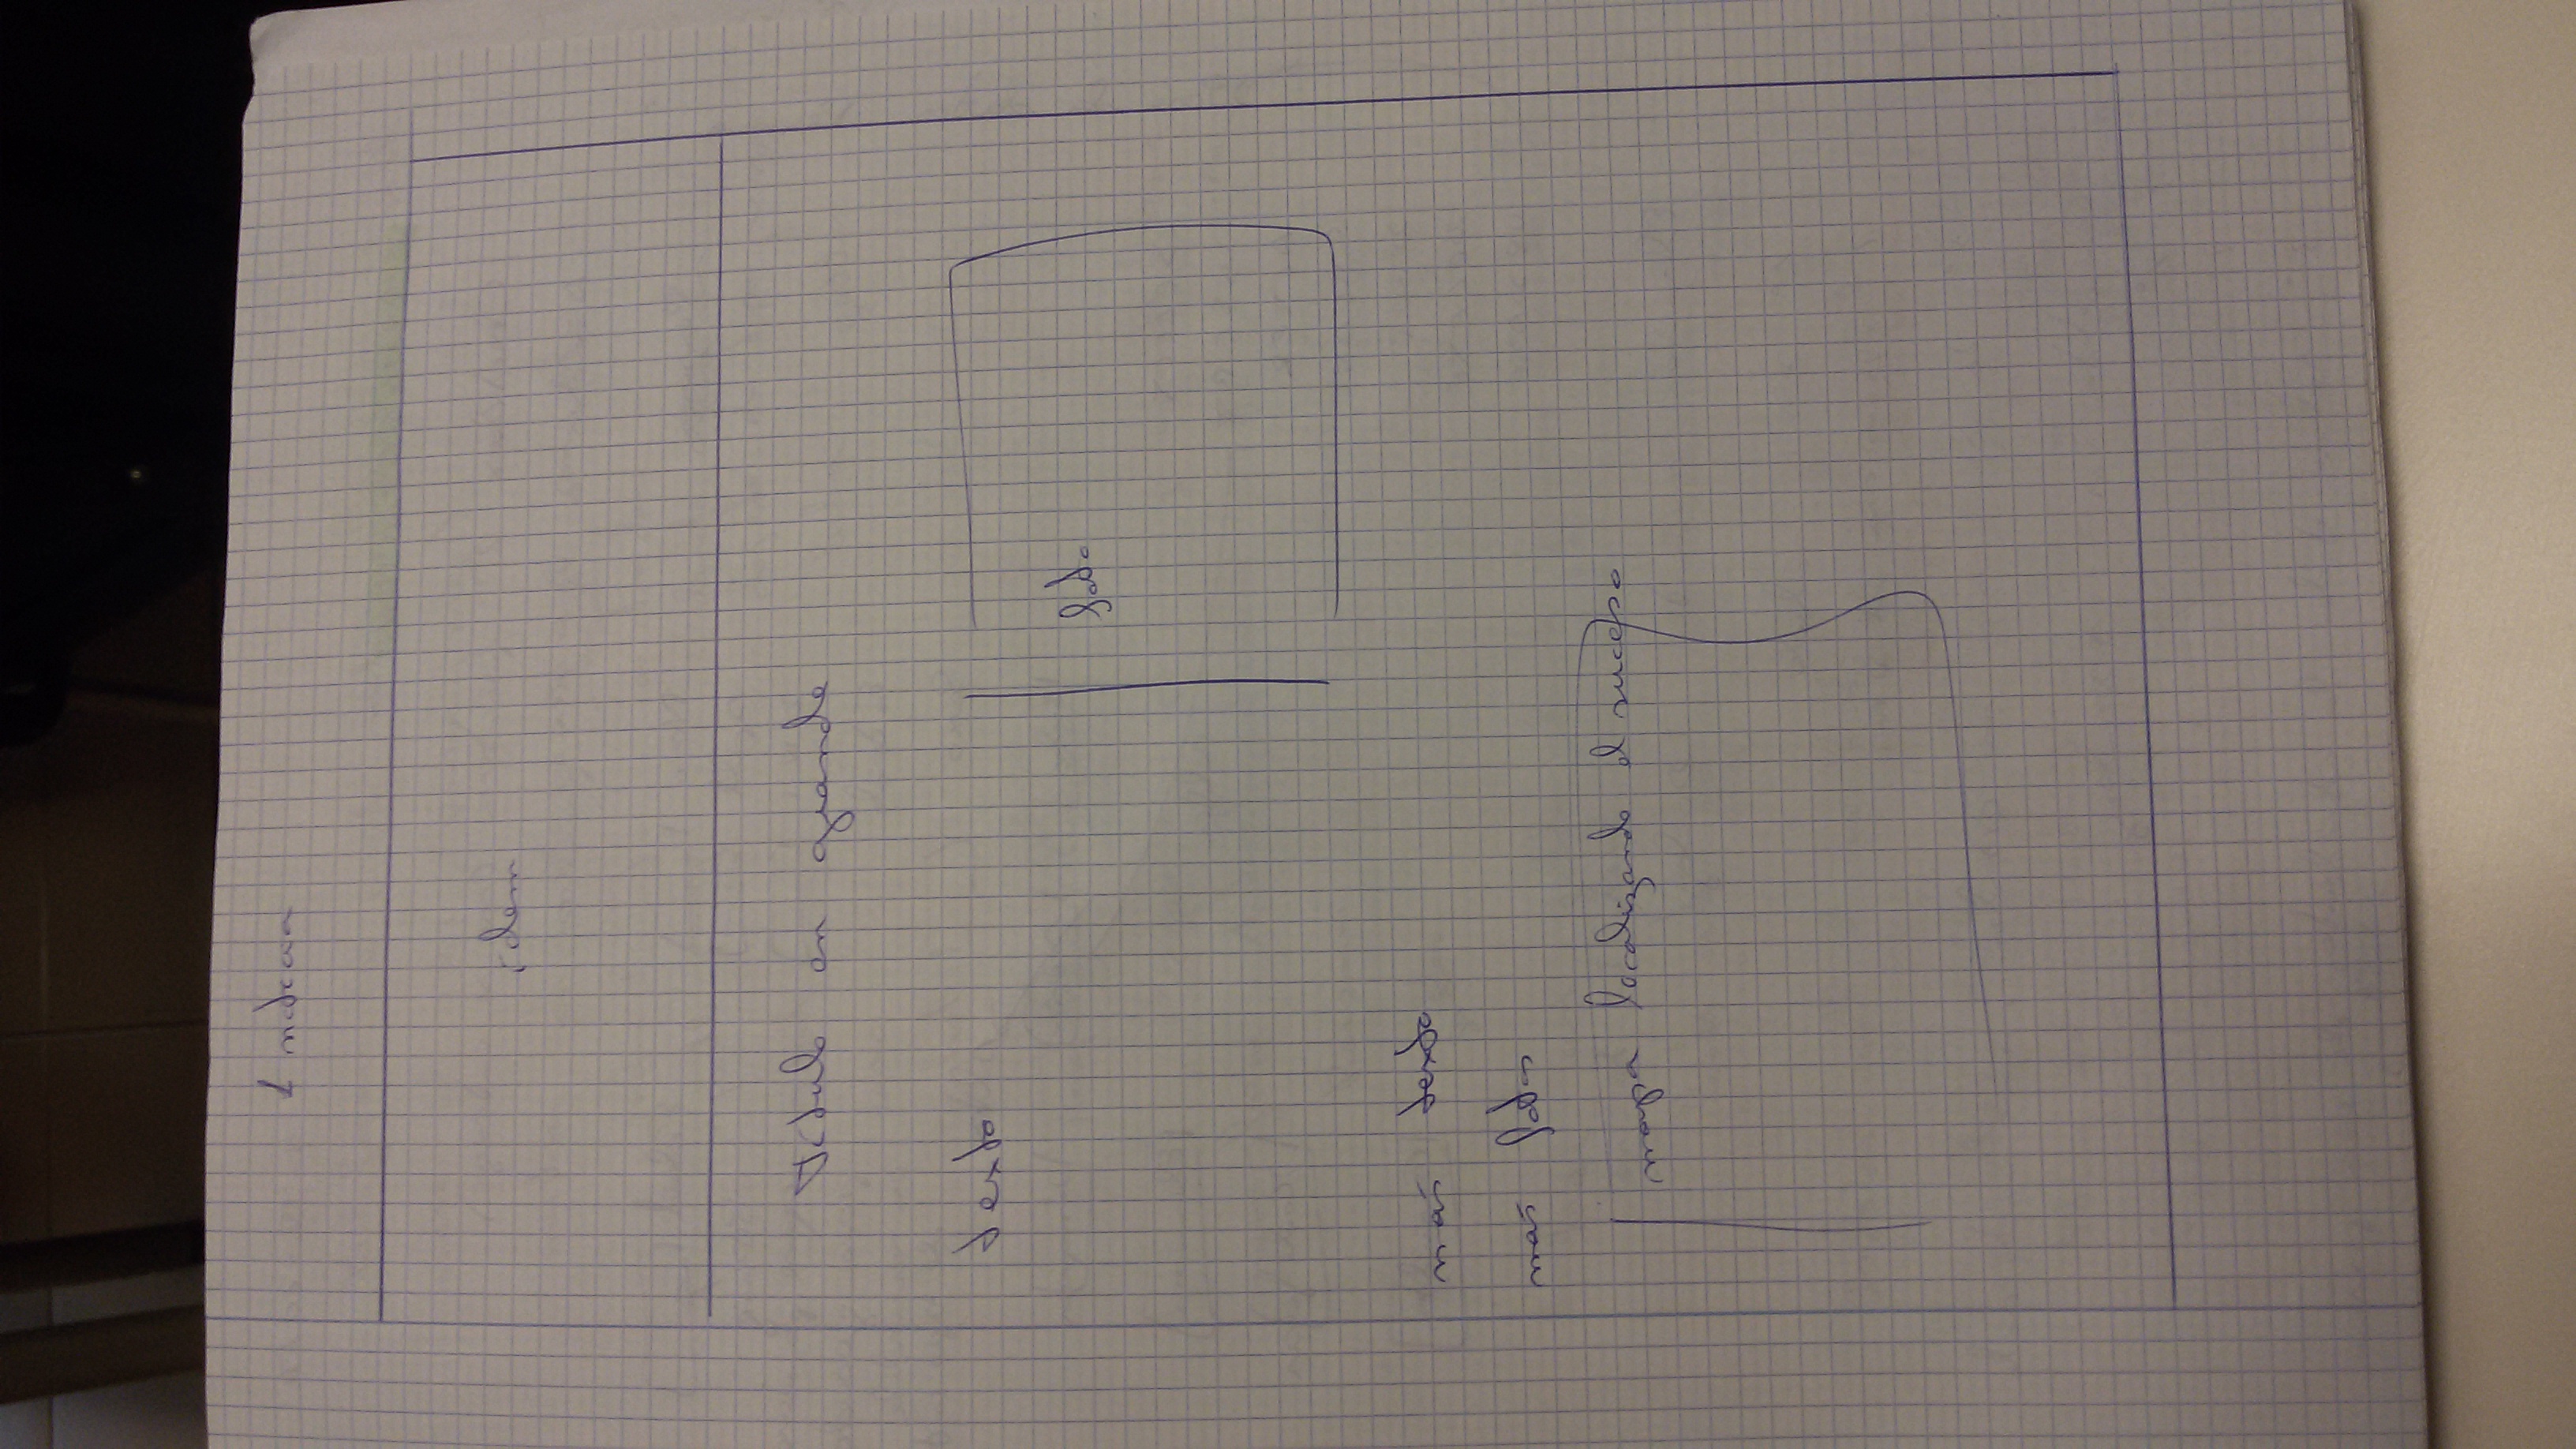 1 noticia
idem
Título en grande
texto
foto
más texto
más fotos
mapa localizando el suceso